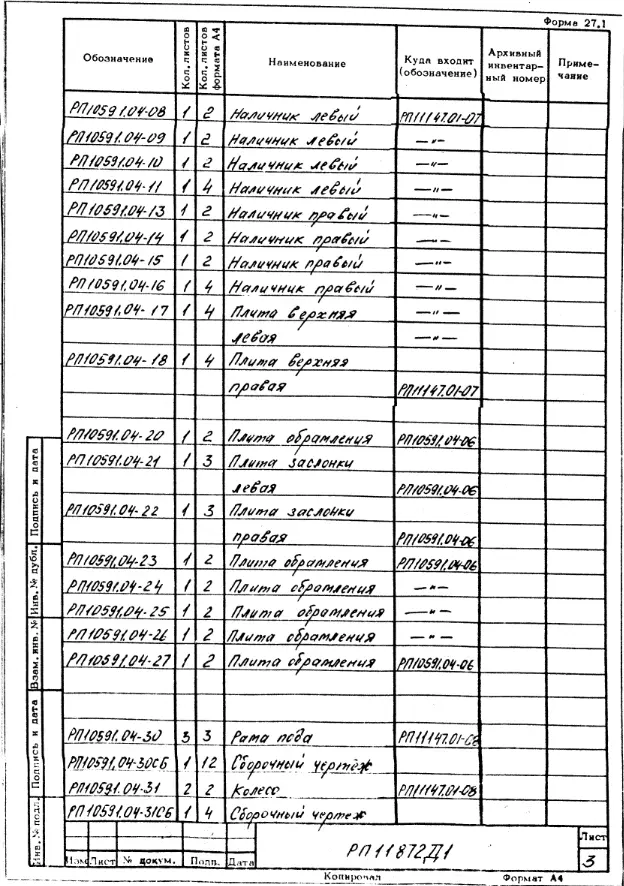 Форма 27.1
Обозначение Кол. листов Кол. листов формата А4 Наименование Куда входит (обозначение) Архивный инвентарный номер Примечание
РП10591.04-08 1 2 Наличник левый РП11147.01-07
РП10591.04-09 1 2 Наличник левый —"—
РП10591.04-10 1 2 Наличник левый —"—
РП10591.04-11 1 4 Наличник левый —"—
РП10591.04-13 1 2 Наличник правый —"—
РП10591.04-14 1 2 Наличник правый —"—
РП10591.04-15 1 2 Наличник правый —"—
РП10591.04-16 1 4 Наличник правый —"—
РП10591.04-17 1 4 Плита верхняя —"—
левая —"—
РП10591.04-18 1 4 Плита верхняя
правая РП11147.01-07
РП10591.04-20 1 2 Плита обрамления РП10591.04-06
РП10591.04-21 1 3 Плита заслонки
левая РП10591.04-06
РП10591.04-22 1 3 Плита заслонки
правая РП10591.04-06
РП10591.04-23 1 2 Плита обрамления РП10591.04-06
РП10591.04-24 1 2 Плита обрамления —"—
РП10591.04-25 1 2 Плита обрамления —"—
РП10591.04-26 1 2 Плита обрамления —"—
РП10591.04-27 1 2 Плита обрамления РП10591.04-06
РП10591.04-30 3 3 Рама пода РП11147.01-08
РП10591.04-30СБ 1 12 Сборочный чертеж
РП10591.04-31 2 2 Колесо РП11147.01-08
РП10591.04-31СБ 1 4 Сборочный чертеж
Подпись и дата
Инв. № дубл.
Взам. инв. №
Подпись и дата
Инв. № подл.
Изм Лист № докум. Подп. Дата
РП11872Д1
Лист
3
Копировал Формат А4